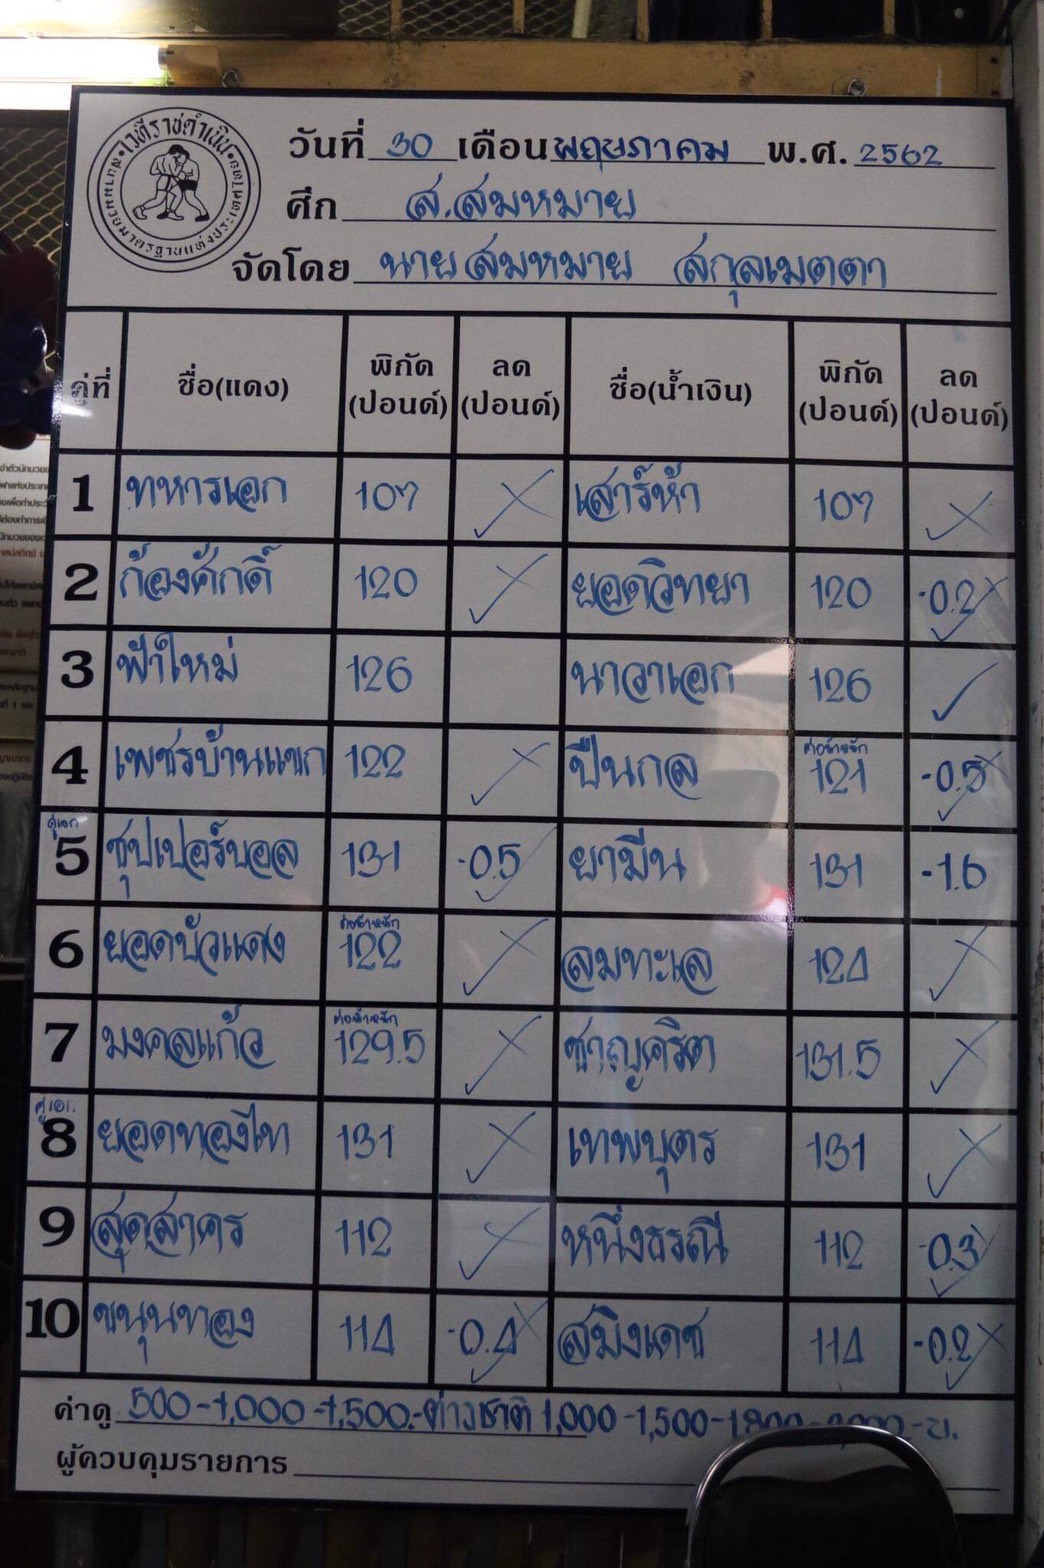 วันที่ 30 เดือน พฤษภาคม พ.ศ. 2562
ศึก ส.สมหมาย
จัดโดย นายสมหมาย สกุลเมตตา
คู่ที่ ชื่อ(แดง) พิกัด (ปอนด์) ลด (ปอนด์) ชื่อ(น้ำเงิน) พิกัด (ปอนด์) ลด (ปอนด์)
1 ทหารเอก 107 เสาร์ห้า 107
2 ก้องศักดิ์ 120 ยอดวิทยา 120 -0.2
3 ฟ้าใหม่ 126 นาวาเอก 126
4 เพชรบ้านแขก 122 ปืนกล ต่อน้ำหนัก 121 -0.5
คู่เอก 5 ซุปเปอร์บอล 131 -0.5 ยามีน 131 -1.6
6 ยอดบัวแดง ต่อน้ำหนัก 122 ลมทะเล 124
7 มงคลแก้ว ต่อน้ำหนัก 129.5 ชาญคริต 131.5
8 ยอดทองไท 131 เทพบุตร 131
9 สุดสาคร 112 หนึ่งธรณี 112 -0.3
10 ขนุนทอง 114 -0.4 สมิงเดช 114 -0.2
ค่าดู 500-1,000-1,500.-ต่างชาติ 1,000-1,500-1,800-2000-บ.
ผู้ควบคุมรายการ